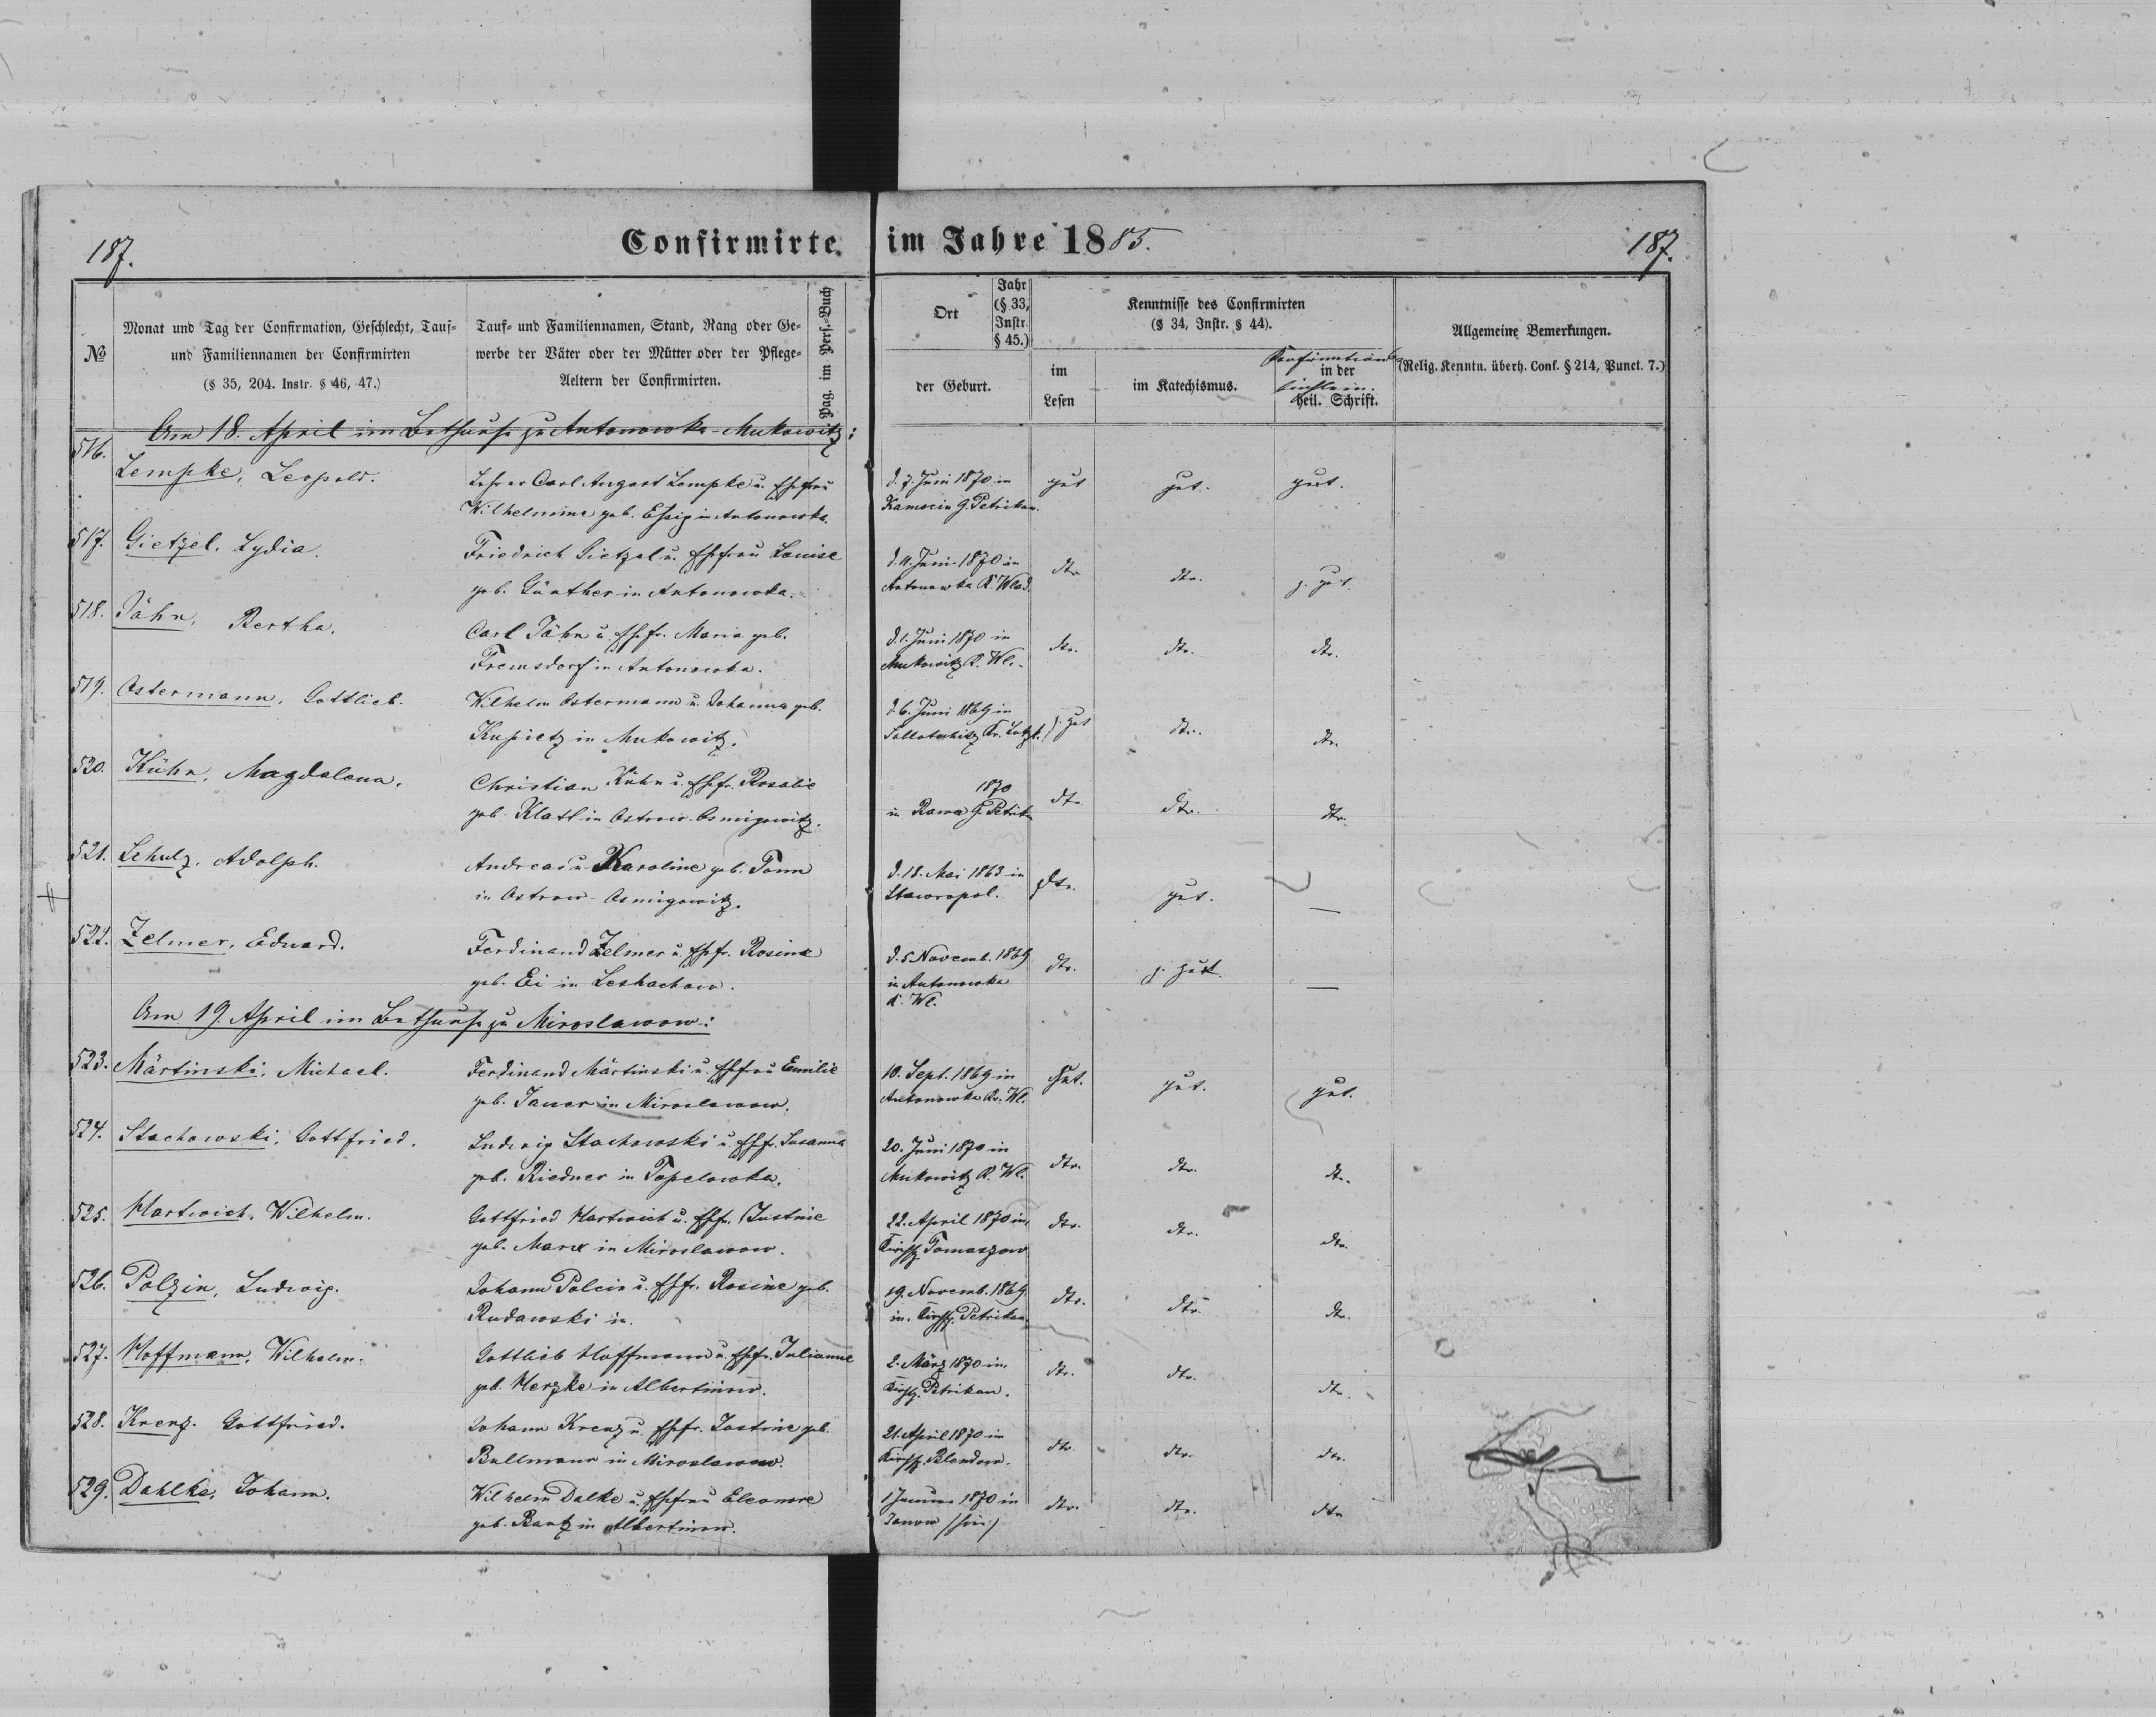 187.
Confirmirte im Jahre 1885.
187.
№
Monat und Tag der Confirmation, Geschlecht, Tauf-
und Familiennamen der Confirmirten
(§ 35, 204. Instr. § 46, 47.)
Tauf- und Familiennamen, Stand, Rang oder Ge-
werbe der Väter oder der Mütter oder der Pflege-
Aeltern der Confirmirten.
Pag. im Pers.-Buch
Ort
Jahr
(§ 33,
Instr.
§ 45.)
der Geburt.
Kenntnisse des Confirmirten
(§ 34, Instr. § 44).
im
Lesen
im Katechismus.
in der
heil. Schrift.
Allgemeine Bemerkungen.
(Relig. Kenntn. überh. Conf. § 214, Punct. 7.)
Am 18. April im Bethause zu Antonowka-Mukowitz:
516. Lempke, Leopold.
Lehrer Carl August Lempke u. Ehefrau
Wilhelmine geb. Essig in Antonowka.
d. 7. Juni 1870 in
Kamocin G. Petrikau.
gut gut. gut.
517. Gietzel, Lydia.
Friedrich Gietzel u. Ehefrau Louise
geb. Günther in Antonowka.
d. 11. Juni 1870 in
Antonowka K. Wlad.
dto. dto. z. gut.
518. Jähn, Bertha.
Carl Jähn u. Ehefr. Maria geb.
Fremsdorf in Antonowka.
d. 1. Juni 1870 in
Mukowitz K. Wl.
dto. dto. dto.
519. Ostermann, Gottlieb.
Wilhelm Ostermann u. Johanna geb.
Kupietz in Mukowitz.
d. 6. Juni 1869 in
Kr. Lutzk.
z. gut dto. dto.
520. Kühn, Magdalena.
Christian Kühn u. Ehefr. Rosalie
geb. Klatt in Ostrow-Osmigowitz.
1870
in Rawa G. Petrikau
dto dto. dto.
521. Schulz, Adolph.
Andreas u. Karoline geb. Tonn
in Ostrow-Osmigowitz.
d. 18. Mai 1863 in
Stawropol.
dto. gut. —
522. Zelmer, Eduard.
Ferdinand Zelmer u. Ehefr. Rosine
geb. Ei in Leshachow.
d. 5 Novemb. 1869
in Antonowka
K. Wl.
dto. z. gut. —
Am 19. April im Bethause zu Miroslawow:
523. Märtinski, Michael.
Ferdinand Märtinski u. Ehefrau Emilie
geb. Janer in Miroslawow.
10. Sept. 1869 in
Antonowka Kr. Wl.
Gut. gut. gut.
524. Stachowski, Gottfried.
Ludwig Stachowski u. Ehefr. Susanna
geb. Riedner in Topelowka.
20. Juni 1870 in
Mukowitz K. Wl.
dto. dto. dto.
525. Hartwich, Wilhelm.
Gottfried Hartwich u. Ehefr. Justine
geb. Marx in Miroslawow.
22. April 1870 in
Kirchsp. Tomaszow
dto. dto. dto.
526. Polzin, Ludwig.
Johann Polcin u. Ehefr. Rosine geb.
Rudawski in.
19. Novemb. 1869
in Kirchsp. Petrikau.
dto. dto. dto.
527. Hoffmann, Wilhelm.
Gottlieb Hoffmann u. Ehefr. Julianne
geb. Herzke in Albertinow.
2. März 1870 in
Kirchsp. Petrikau.
dto. dto. dto.
528. Krenz, Gottfried.
Johann Krenz u. Ehefr. Justine geb.
Bullmann in Miroslawow.
21. April 1870 in
Kirchsp. Blendow.
dto. dto. dto.
529. Dahlke, Johann.
Wilhelm Dalke u. Ehefrau Eleonore
geb. Bantz in Albertinow.
1 Januar 1870 in
Janow
dto. dto. dto